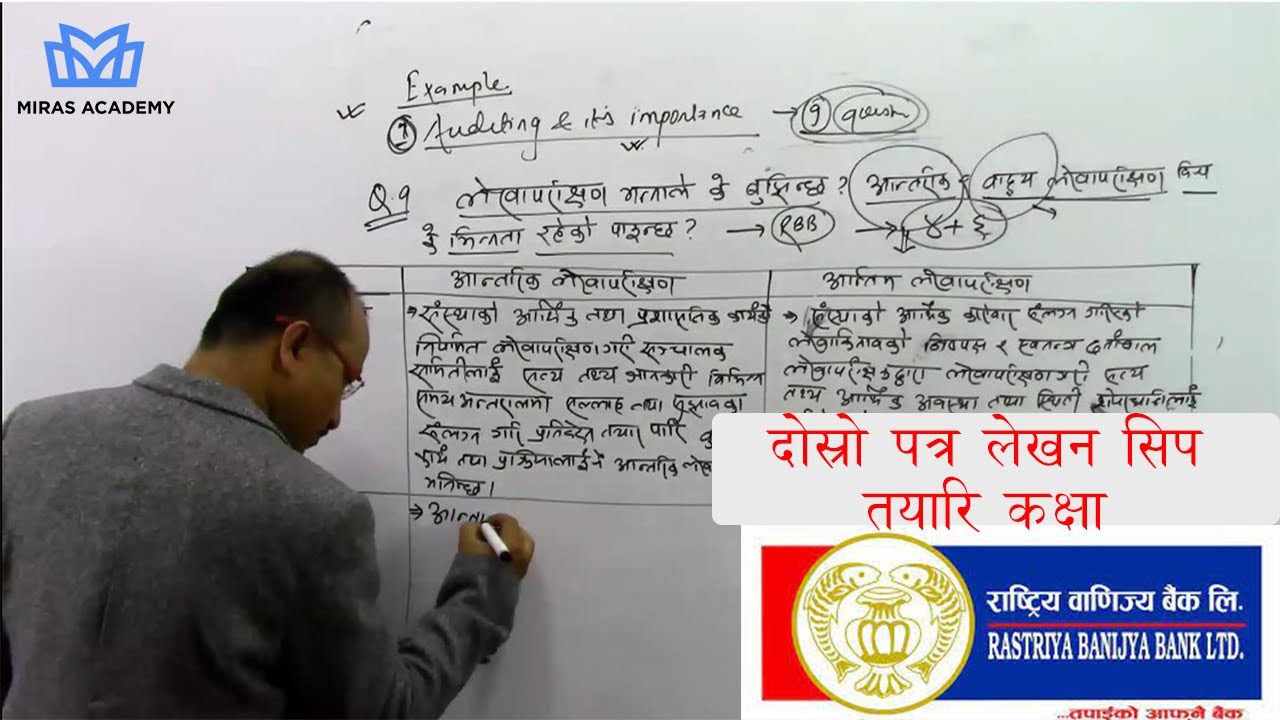 MIRAS ACADEMY
Example
① Auditing & its importance → ९ question
Q.9 लेखापरीक्षण भन्नाले के बुझिन्छ ? आन्तरिक र बाह्य लेखापरीक्षण बिच
के भिन्नता रहेको पाइन्छ ? → RBB → ४+६
आन्तरिक लेखापरीक्षण
अन्तिम लेखापरीक्षण
→ संस्थाको आर्थिक तथा प्रशासनिक कार्यको
नियमित लेखापरीक्षण गरी सञ्चालक
समितीलाई सत्य तथ्य जानकारी विभिन्न
समय अन्तरालमा सल्लाह तथा सुझावका
संलग्न गरि प्रतिवेदन तयार पारि
कार्य तथा प्रक्रियालाई नै आन्तरिक
भनिन्छ।
→ संस्थाको आर्थिक कारोबार संलग्न गरिएको
लेखाकिताबको निष्पक्ष र स्वतन्त्र
लेखापरीक्षकद्वारा लेखापरीक्षण गरी सत्य
तथ्य आर्थिक अवस्था तथा स्थिती
→ आन्त
दोस्रो पत्र लेखन सिप
तयारि कक्षा
राष्ट्रिय वाणिज्य बैंक लि.
RASTRIYA BANIJYA BANK LTD.
...तपाईको आफ्नै बैंक